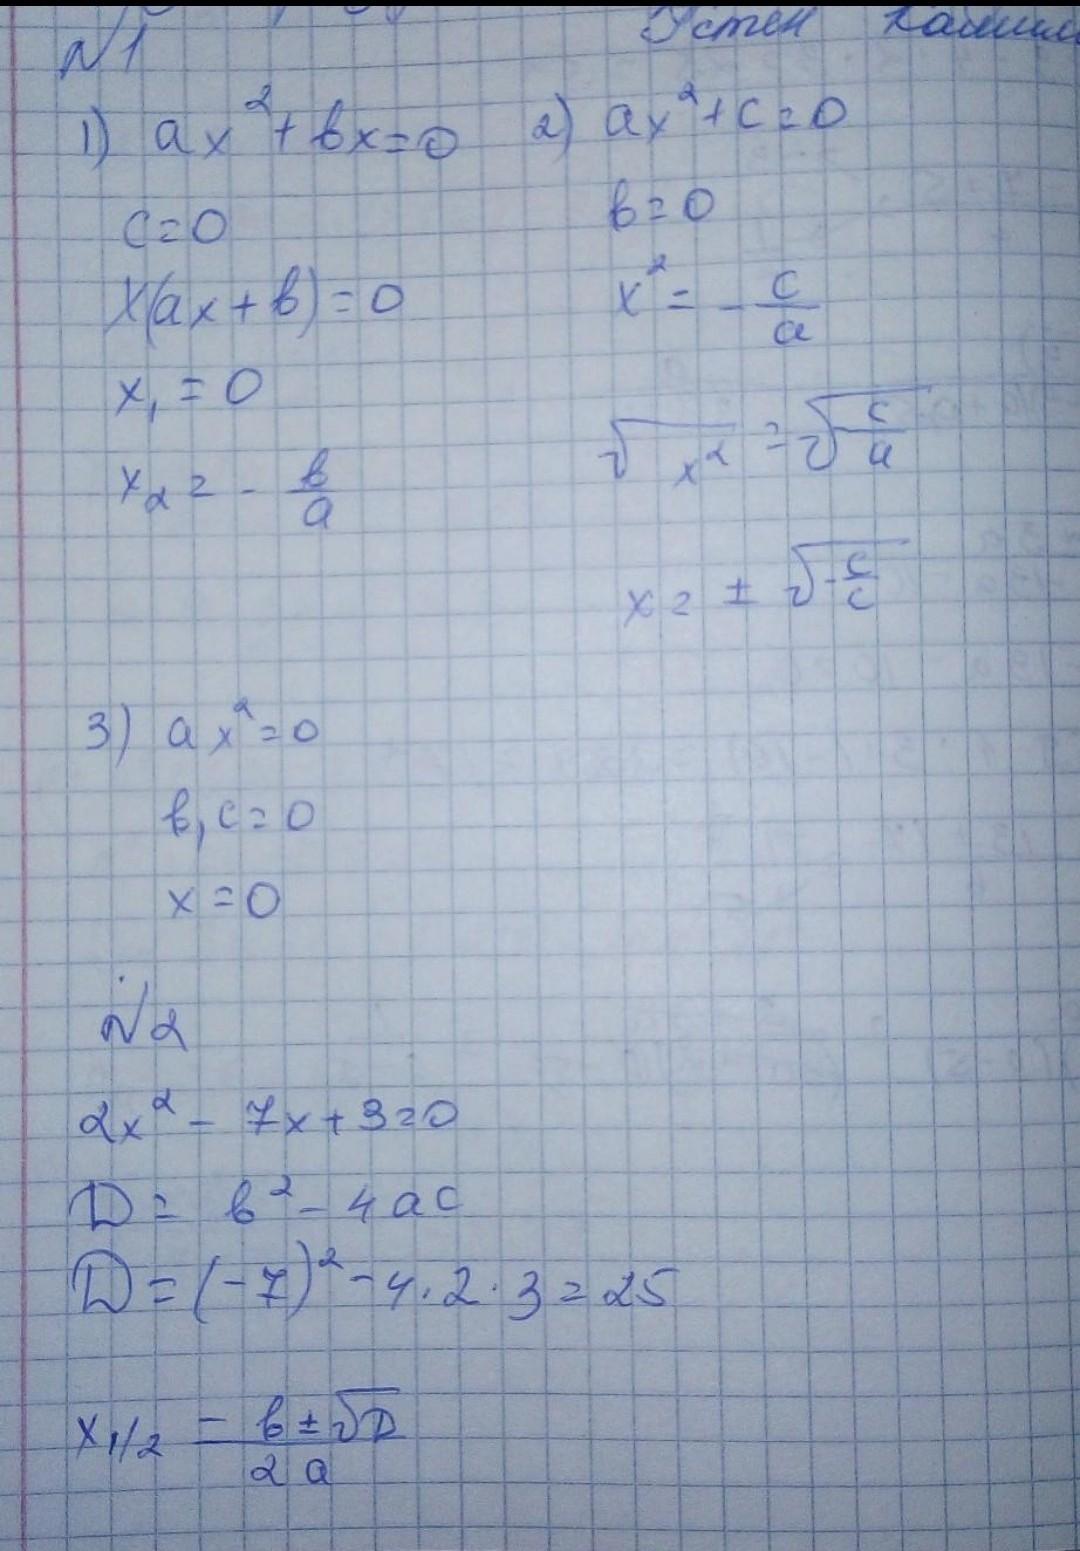 Устен
№1
1) ax² + bx = 0
c = 0
x(ax + b) = 0
x₁ = 0
x₂ = - b/a
2) ax² + c = 0
b = 0
x² = - c/a
√x² = √c/a
x = ± √-c/c
3) ax² = 0
b, c = 0
x = 0
№2
2x² - 7x + 3 = 0
D = b² - 4ac
D = (-7)² - 4 · 2 · 3 = 25
x₁/₂ = b ± √D / 2a